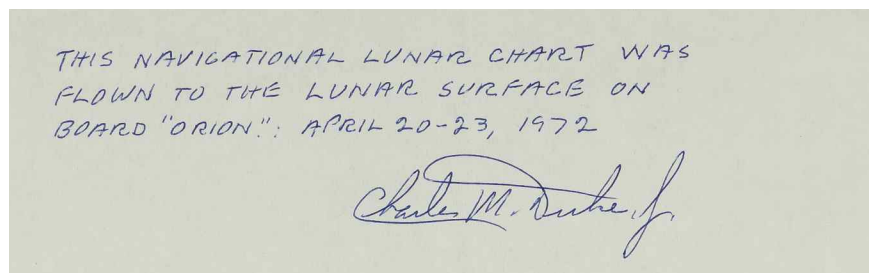 THIS NAVIGATIONAL LUNAR CHART WAS
FLOWN TO THE LUNAR SURFACE ON
BOARD "ORION": APRIL 20-23, 1972
Charles M. Duke, Jr.